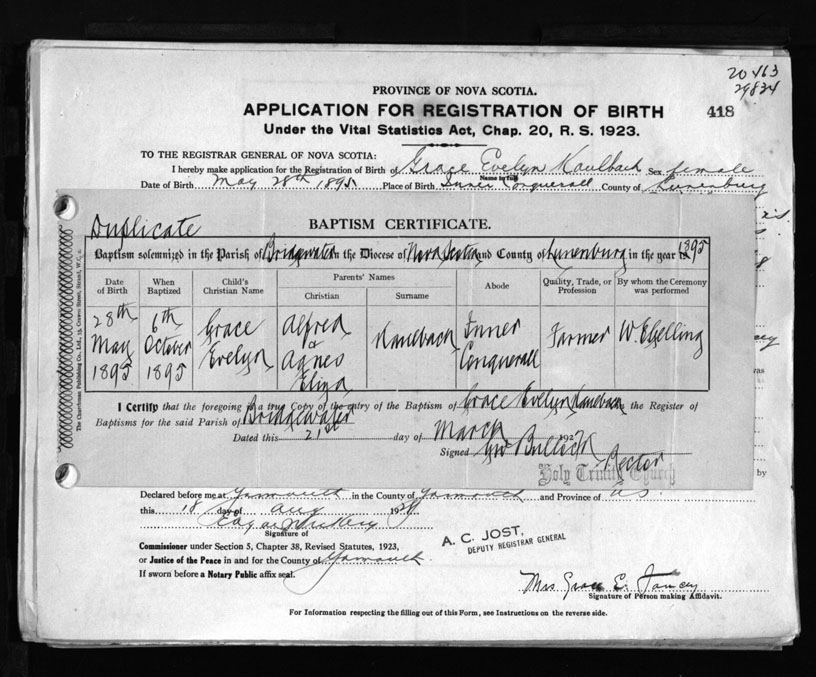 20463
29834
PROVINCE OF NOVA SCOTIA.
APPLICATION FOR REGISTRATION OF BIRTH 418
Under the Vital Statistics Act, Chap. 20, R. S. 1923.
TO THE REGISTRAR GENERAL OF NOVA SCOTIA:
I hereby make application for the Registration of Birth of Grace Evelyn Kaulbach Sex female
Name in full
Date of Birth May 28th 1895 Place of Birth Inner Conquerall County of Lunenburg
Duplicate
BAPTISM CERTIFICATE.
Baptism solemnized in the Parish of Bridgewater in the Diocese of Nova Scotia and County of Lunenburg in the year 1895
Date of Birth
When Baptized
Child's Christian Name
Parents' Names
Christian
Surname
Abode
Quality, Trade, or Profession
By whom the Ceremony was performed
28th May 1895
6th October 1895
Grace Evelyn
Alfred & Agnes Eliza
Kaulbach
Inner Conquerall
Farmer
W. E. Gelling
I Certify that the foregoing is a true Copy of the entry of the Baptism of Grace Evelyn Kaulbach in the Register of
Baptisms for the said Parish of Bridgewater
Dated this 21st day of March 192
Signed Bullock
Rector
Holy Trinity Church
Declared before me at Yarmouth in the County of Yarmouth and Province of N.S.
this 18 day of Aug 192
Signature of
Commissioner under Section 5, Chapter 38, Revised Statutes, 1923,
or Justice of the Peace in and for the County of Yarmouth.
If sworn before a Notary Public affix seal.
A. C. JOST,
DEPUTY REGISTRAR GENERAL
Mrs Grace E.
Signature of Person making Affidavit.
For Information respecting the filling out of this Form, see Instructions on the reverse side.